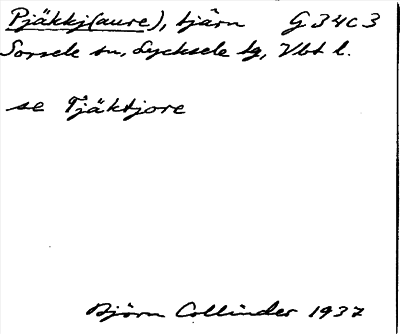 Pjäkkj(aure), tjärn G 34 c 3
Sorsele sn, Lycksele lg, Vbt l.
se Tjäktjore
Björn Collinder 1937